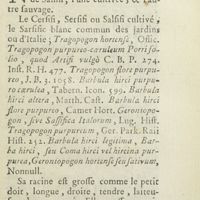 tre sauvage.
Le Cersifi, Sersifi ou Salsifi cultivé,
le Sarsifie blanc commun des jardins
ou d'Italie; Tragopogon hortense, Offic.
Tragopogon purpureo-cæruleum Porri fo-
lio, quod Artifi vulgò C. B. P. 274.
Inst. R. H. 477. Tragopogon flore purpu-
reo, J. B. 3. 1058. Barbula hirci purpu-
ro cærulea, Tabern. Icon. 599. Barbula
hirci altera, Matth. Cast. Barbula hirci
flore purpureo, Camer Hort. Gerontopo-
gon, sive Saffifica Italorum, Lug. Hist.
Tragopogon purpureum, Ger. Park. Raii
Hist. 252. Barbula hirci legitima, Bar-
ba hirci, seu Coma hirci vel hircina pur-
purea, Gerontopogon hortense seu sativum,
Nonnull.
Sa racine est grosse comme le petit
doit, longue, droite, tendre, laiteu-